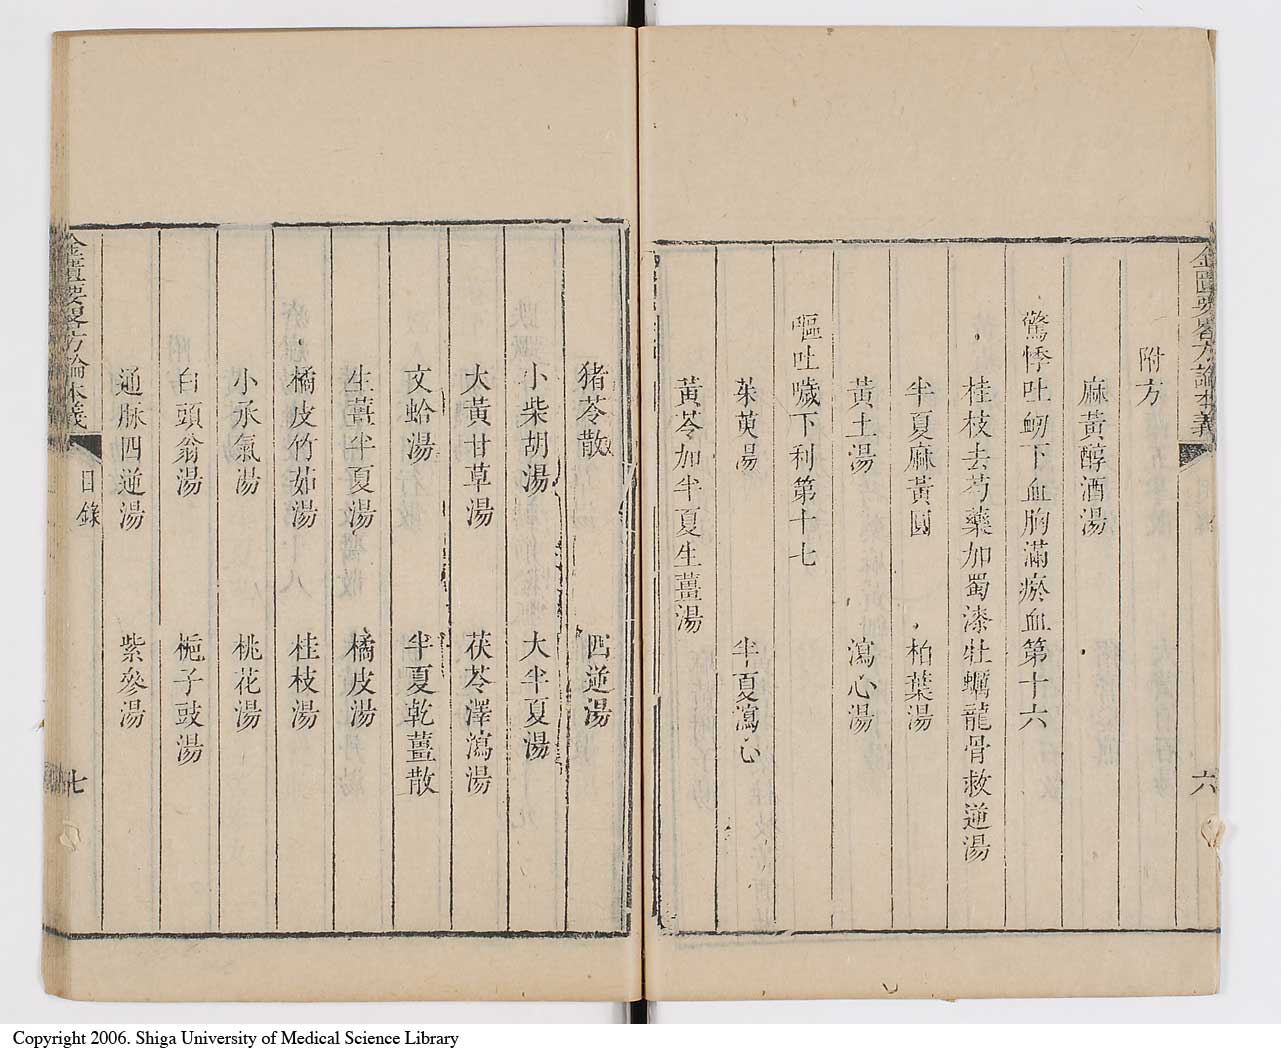 金匱要畧方論本義
六
附方
麻黃醇酒湯
驚悸吐衂下血胸滿瘀血第十六
桂枝去芍藥加蜀漆牡蠣龍骨救逆湯
半夏麻黃圓 柏葉湯
黃土湯 瀉心湯
嘔吐噦下利第十七
茱萸湯 半夏瀉心
黃芩加半夏生薑湯
猪苓散 四逆湯
小柴胡湯 大半夏湯
大黃甘草湯 茯苓澤瀉湯
文蛤湯 半夏乾薑散
生薑半夏湯 橘皮湯
橘皮竹茹湯 桂枝湯
小承氣湯 桃花湯
白頭翁湯 梔子豉湯
通脉四逆湯 紫參湯
金匱要畧方論本義
目錄
七
Copyright 2006. Shiga University of Medical Science Library